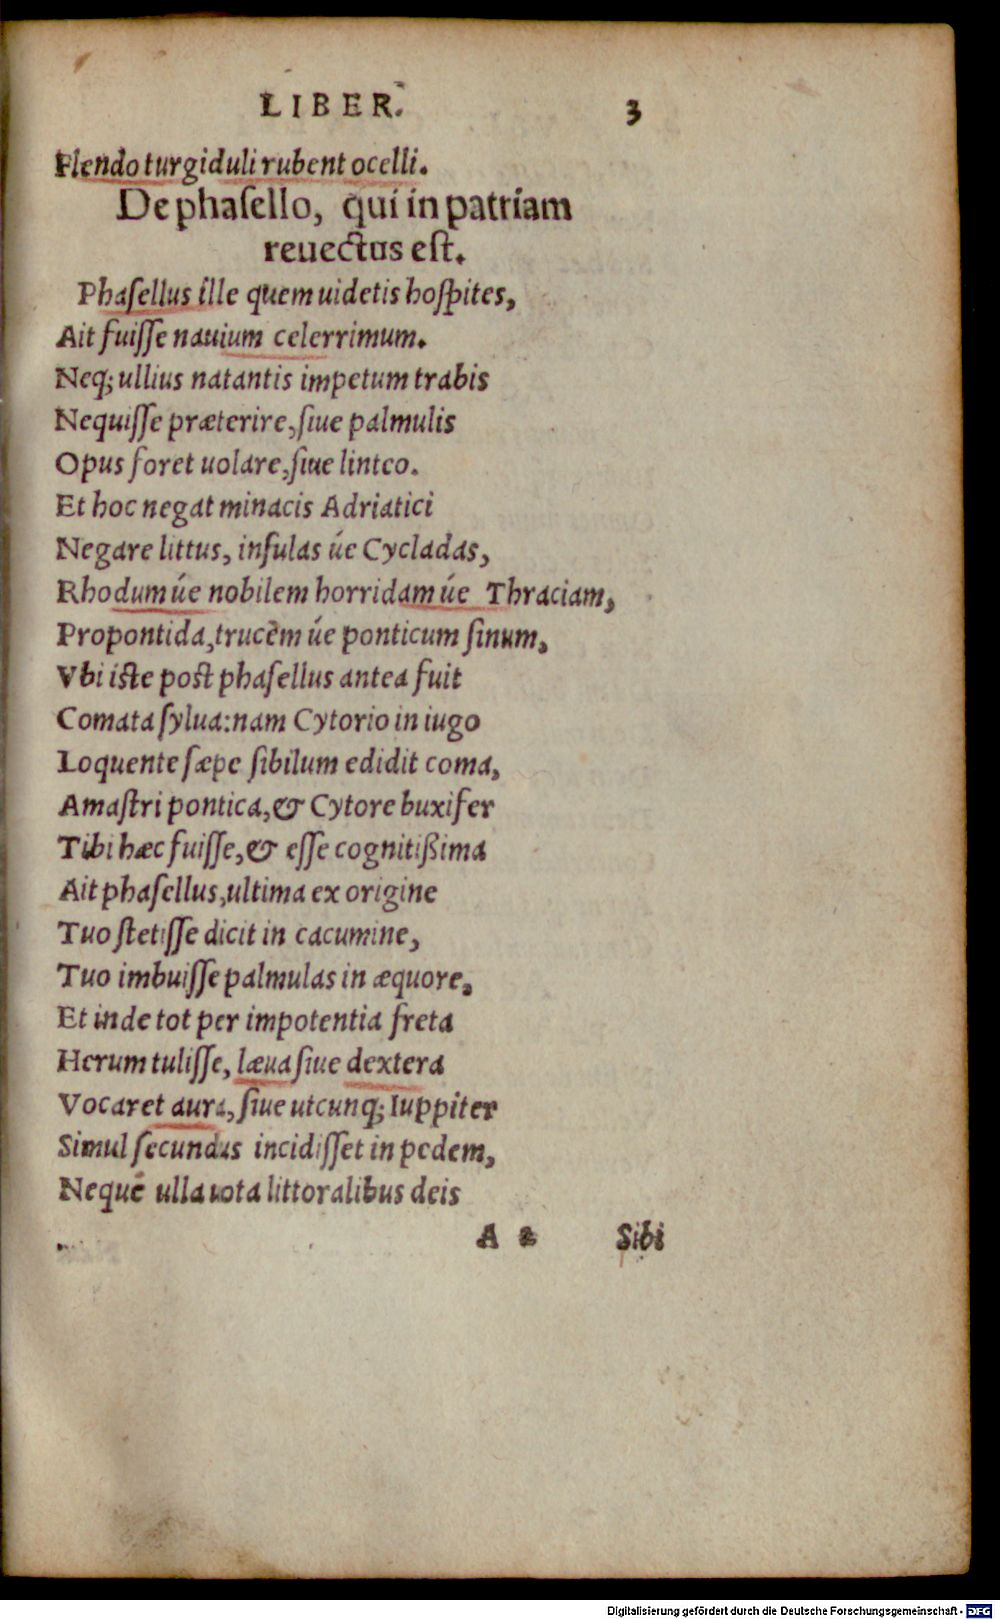 LIBER. 3
Flendo turgiduli rubent ocelli.
De phaſello, qui in patriam
reuectus eſt.
Phaſellus ille quem uidetis hoſpites,
Ait fuiſſe nauium celerrimum.
Neq; ullius natantis impetum trabis
Nequiſſe præterire, ſiue palmulis
Opus foret uolare, ſiue linteo.
Et hoc negat minacis Adriatici
Negare littus, inſulas úe Cycladas,
Rhodum úe nobilem horridam úe Thraciam,
Propontida, trucem úe ponticum ſinum,
Vbi iſte poſt phaſellus antea fuit
Comata ſylua: nam Cytorio in iugo
Loquente ſæpe ſibilum edidit coma,
Amaſtri pontica, & Cytore buxifer
Tibi hæc fuiſſe, & eſſe cognitißima
Ait phaſellus, ultima ex origine
Tuo ſtetiſſe dicit in cacumine,
Tuo imbuiſſe palmulas in æquore,
Et inde tot per impotentia freta
Herum tuliſſe, læua ſiue dextera
Vocaret aura, ſiue utcunq; Iuppiter
Simul ſecundus incidiſſet in pedem,
Neque ulla uota littoralibus deis
A 2 Sibi
Digitalisierung gefördert durch die Deutsche Forschungsgemeinschaft - DFG